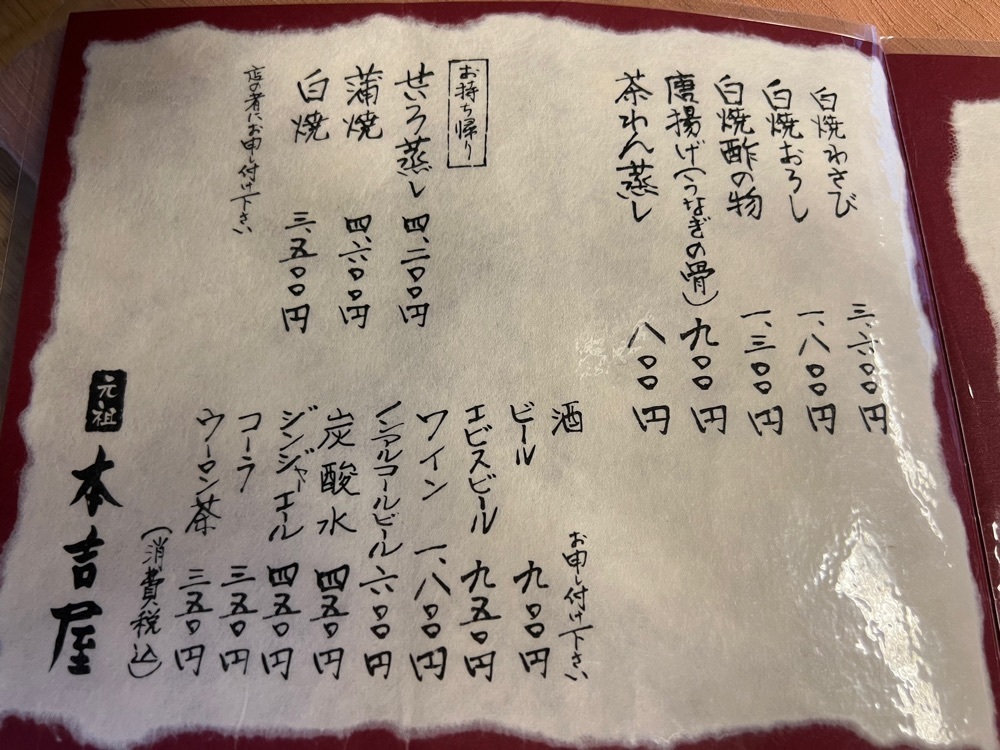 白焼わさび 三、六〇〇円
白焼おろし 一、八〇〇円
白焼酢の物 一、三〇〇円
唐揚げ(うなぎの骨) 九〇〇円
茶わん蒸し 八〇〇円
お持ち帰り
せいろ蒸し 四、二〇〇円
蒲焼 四、六〇〇円
白焼 三、五〇〇円
店の者にお申し付け下さい
酒 お申し付け下さい
ビール 九〇〇円
エビスビール 九五〇円
ワイン 一、八〇〇円
ノンアルコールビール 六〇〇円
炭酸水 四五〇円
ジンジャーエール 四五〇円
コーラ 三五〇円
ウーロン茶 三五〇円
(消費税込)
元祖 本吉屋